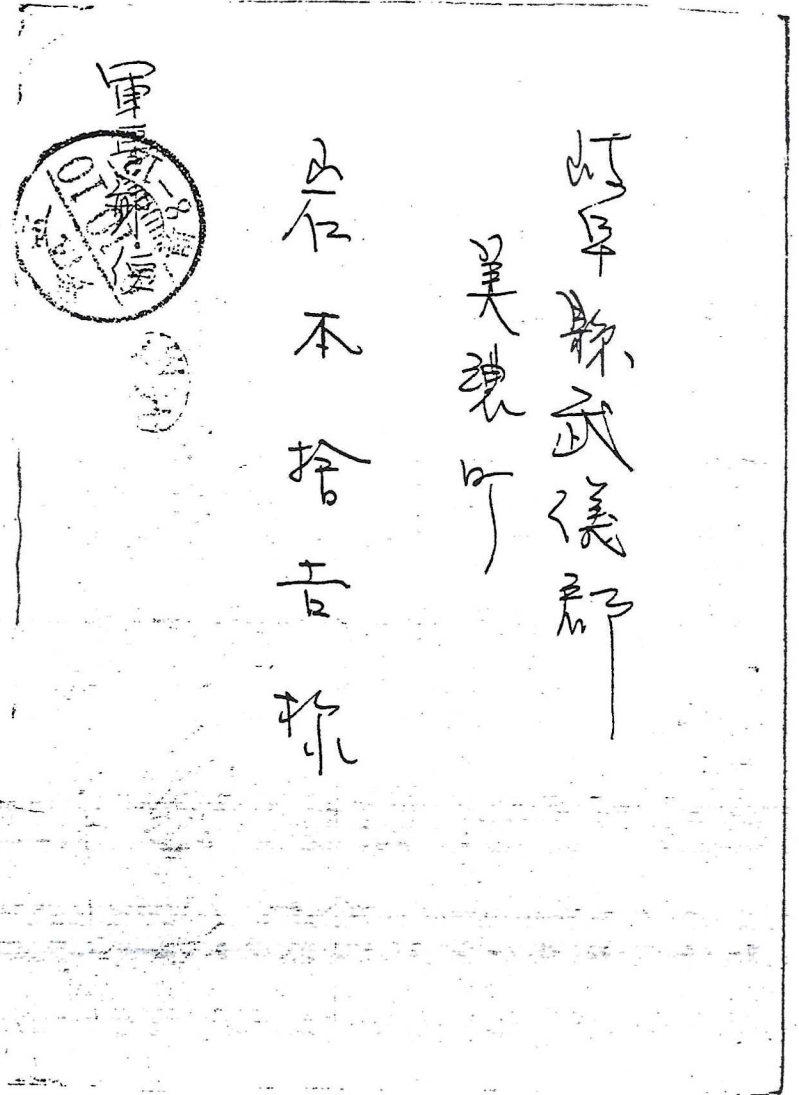 岐阜縣武儀郡
美濃町
岩本捨吉様
軍事郵便